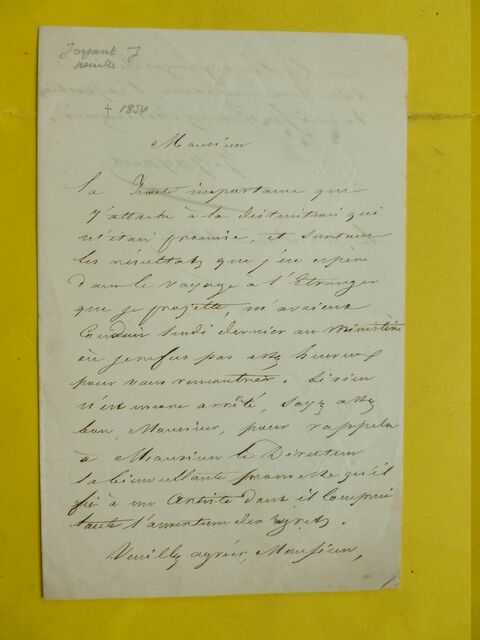 Joyant J
peintre
† 1854
Monsieur
la juste importance que
j'attache à la distinction qui
m'était promise, et surtout
les resultats que j'en espère
dans le voyage à l'Etranger
que je projette, m'avaient
conduit lundi dernier au ministère
où je ne fus pas assez heureux
pour vous rencontrer. Si rien
n'est encore arrêté, soyez assez
bon, Monsieur, pour rappeler
à Monsieur le Directeur
sa bienveillante promesse qu'il
fit à un Artiste dont il comprit
toute l'amertume des regrets.
Veuillez agréer, Monsieur,